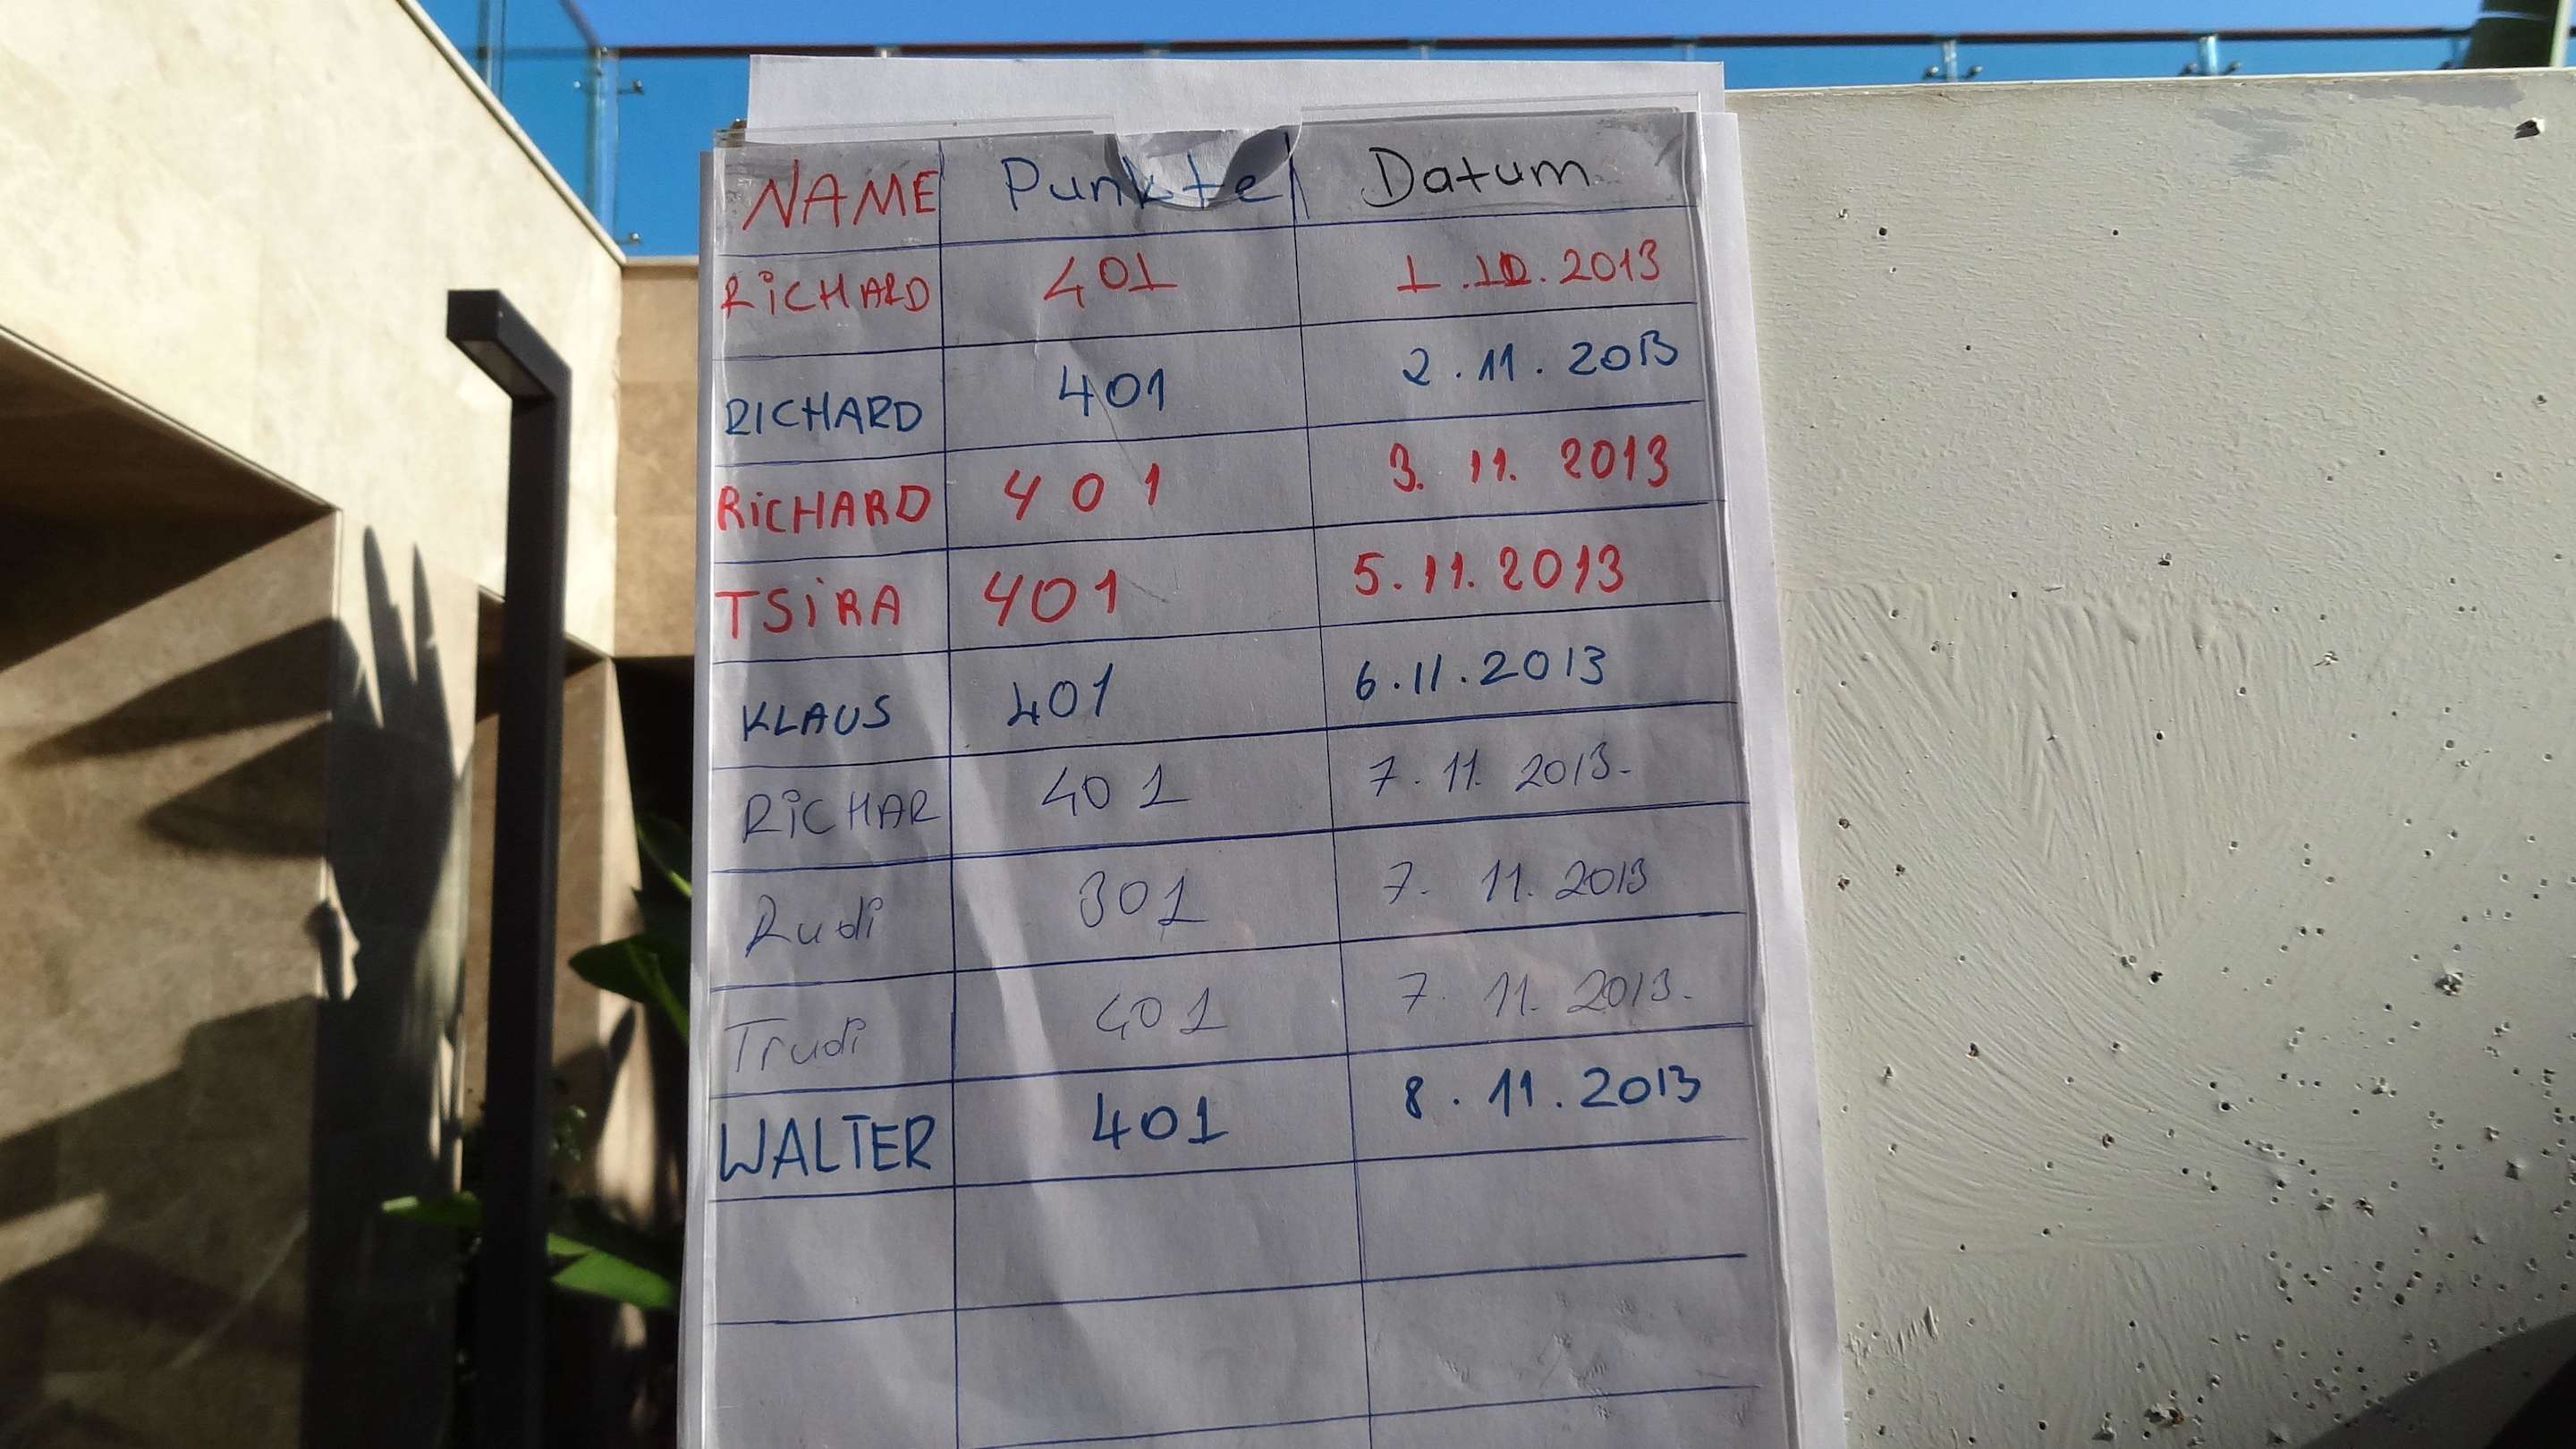 NAME Punkte Datum
RiCHARD 401 1.10.2013
RICHARD 401 2.11.2013
RiCHARD 401 3.11.2013
TSiRA 401 5.11.2013
KLAUS 401 6.11.2013
RiCHAR 401 7.11.2013.
Rudi 301 7.11.2013
Trudi 401 7.11.2013.
WALTER 401 8.11.2013